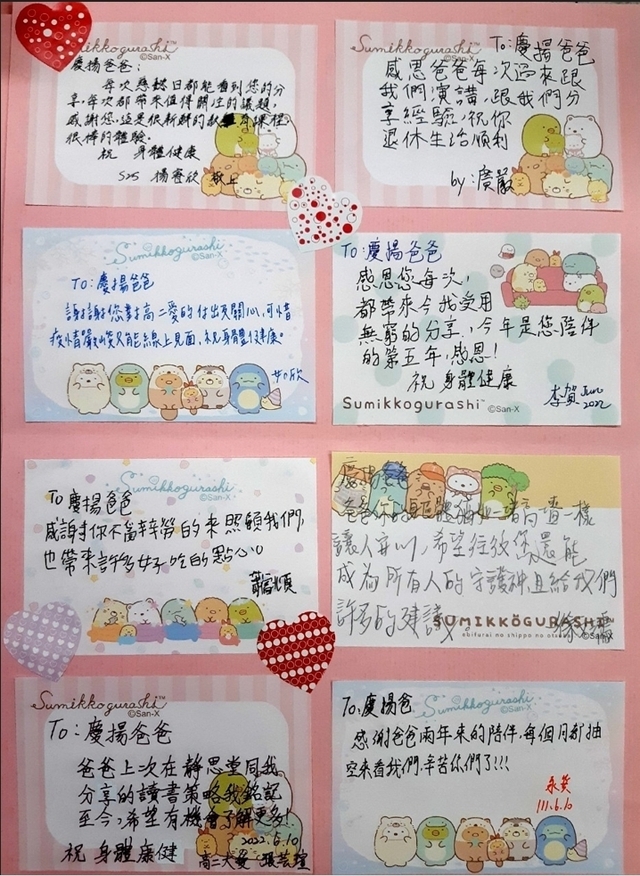 Sumikkogurashi™
©San-X
慶揚爸爸：
每次慈懿日都能看到您的分
享,每次都帶來值得關注的議題,
感謝您,這是很新鮮的
很棒的體驗。
祝 身體健康
525 楊 欣 敬上
Sumikkogurashi™
©San-X
To:慶揚爸爸
感恩爸爸每次過來跟
我們演講,跟我們分
享經驗,祝你
退休生活順利
by:廣嚴
Sumikkogurashi
©San-X
TO:慶揚爸爸
謝謝您對高二愛的付出與關心,可惜
疫情嚴峻只能線上見面,祝身體健康。
如欣
TO:慶揚爸爸
感恩您每次,
都帶來令我受用
無窮的分享,今年是您陪伴
的第五年,感恩!
祝 身體健康
李賀 Jun
2022
Sumikkogurashi™ ©San-X
Sumikkogurashi
©San-X
To慶揚爸爸
感謝你不畏辛勞的來照顧我們,
也帶來許多好吃的點心
慶揚爸爸
爸爸你的 一樣
讓人安心,希望往後您還能
成為所有人的守護神且給我們
許多的建議。
SUMIKKOGURASHI™
ebifurai no shippo no
Sumikkogurashi™
©San-X
To:慶揚爸爸
爸爸上次在靜思堂同我
分享的讀書策略我銘記
至今,希望有機會了解更多!
祝 身體康健
2022.6.10
高二大愛 張芸瑄
Sumikkogurashi
©San-X
To:慶揚爸
感謝爸爸兩年來的陪伴,每個月都抽
空來看我們,辛苦你們了!!!
111.6.10